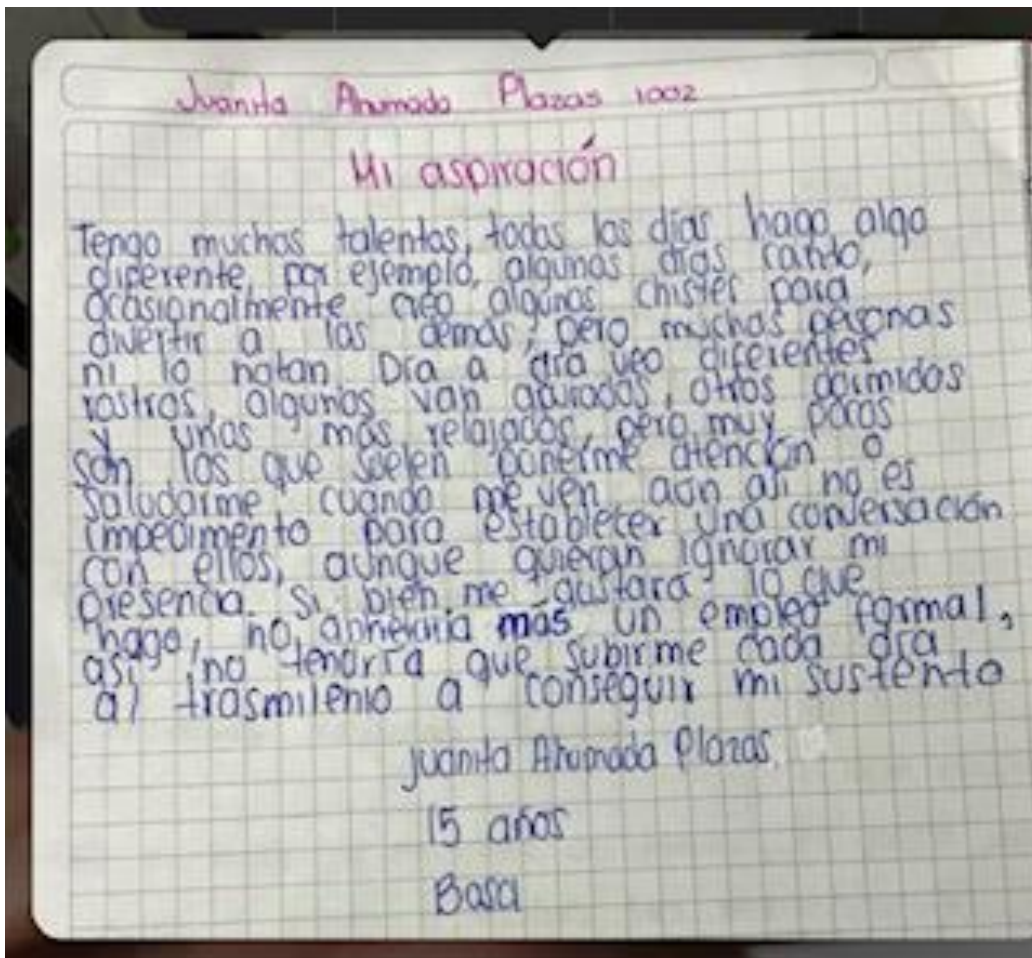 Juanita Ahumada Plazas 1002
Mi aspiración
Tengo muchos talentos, todos los días hago algo
diferente, por ejemplo, algunos días canto,
ocasionalmente creo algunos chistes para
divertir a los demás, pero muchas personas
ni lo notan. Día a día veo diferentes
rostros, algunos van apurados, otros dormidos
y unos más relajados, pero muy pocos
son los que suelen ponerme atención o
saludarme cuando me ven, aún así no es
impedimento para establecer una conversación
con ellos, aunque quieran ignorar mi
presencia. Si bien me gustara lo que
hago, no, anhelaría más un empleo formal,
así no tendría que subirme cada día
al trasmilenio a conseguir mi sustento
Juanita Ahumada Plazas,
15 años
Bosa